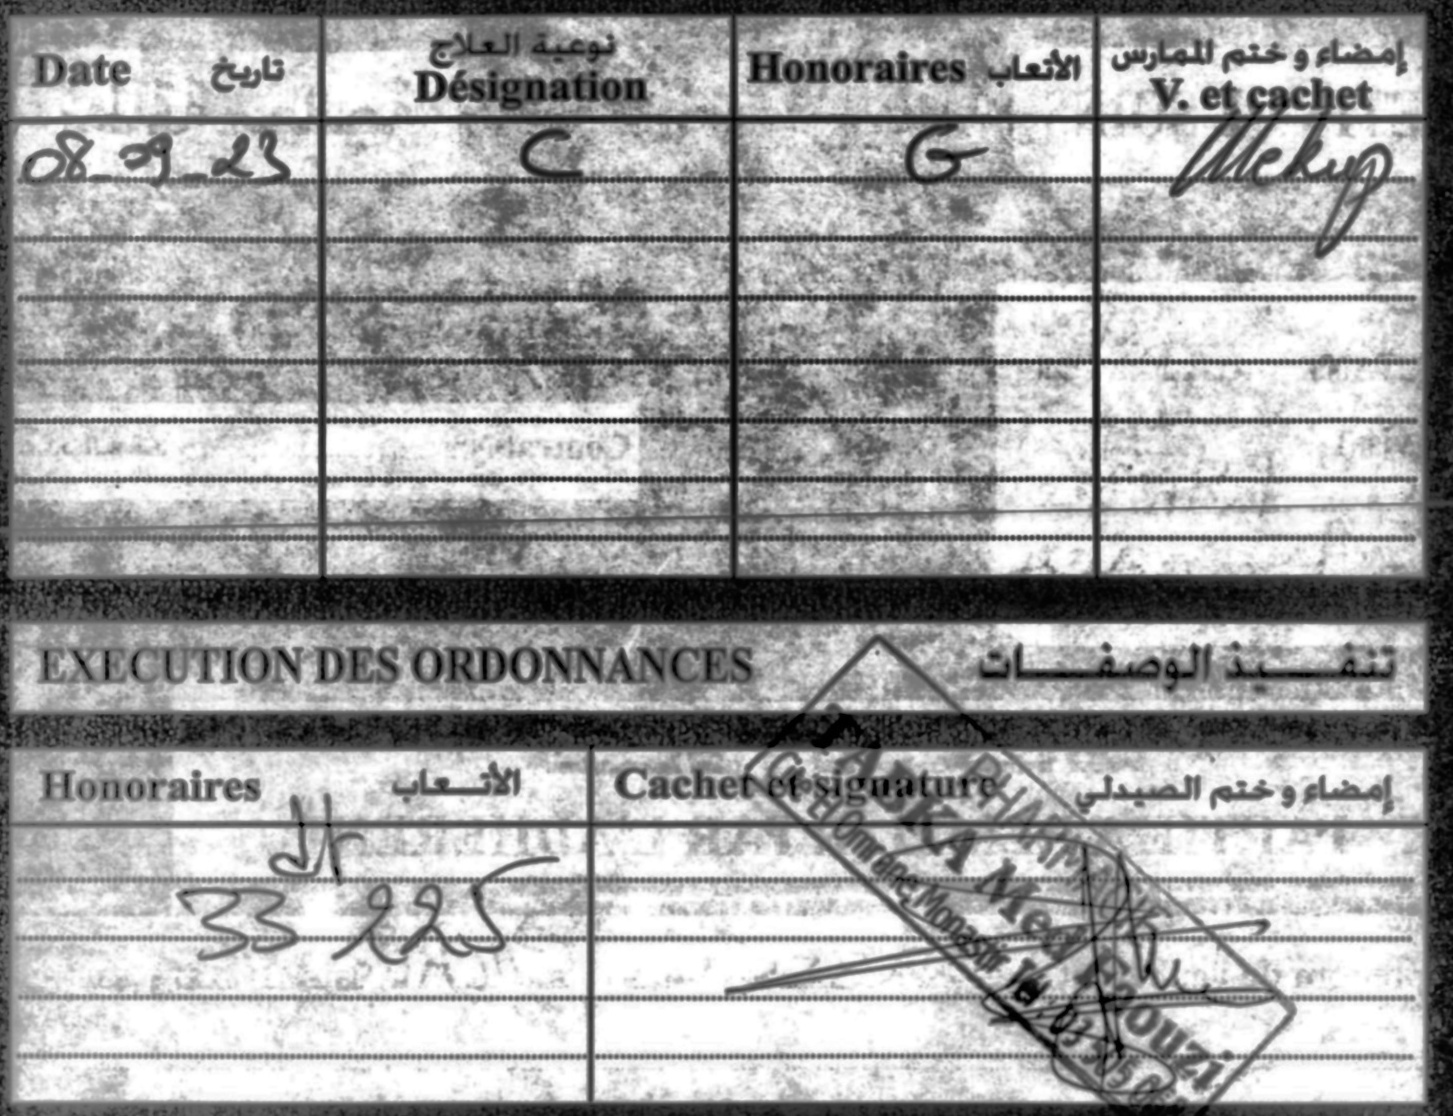 Date تاريخ
نوعية العلاج
Désignation
Honoraires الأتعاب
إمضاء و ختم الممارس
V. et cachet
08_09_23 C G
EXECUTION DES ORDONNANCES تنفيذ الوصفات
Honoraires الأتعاب
Cachet et signature إمضاء و ختم الصيدلي
dt
33 225
PHARMACIE
TASKA Med Fouzi
Cité El Omrane, Monastir Tél.